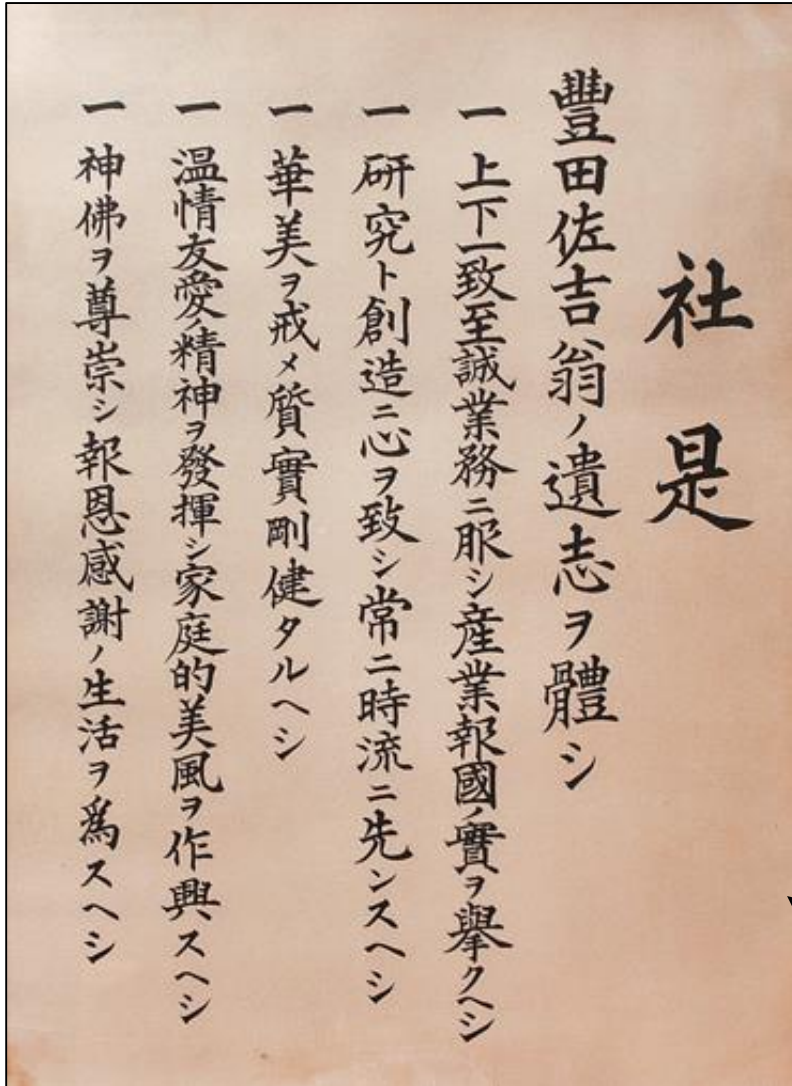 社是
豐田佐吉翁ノ遺志ヲ體シ
一 上下一致至誠業務ニ服シ産業報國ノ實ヲ擧クヘシ
一 研究ト創造ニ心ヲ致シ常ニ時流ニ先ンスヘシ
一 華美ヲ戒メ質實剛健タルヘシ
一 溫情友愛ノ精神ヲ發揮シ家庭的美風ヲ作興スヘシ
一 神佛ヲ尊崇シ報恩感謝ノ生活ヲ爲スヘシ